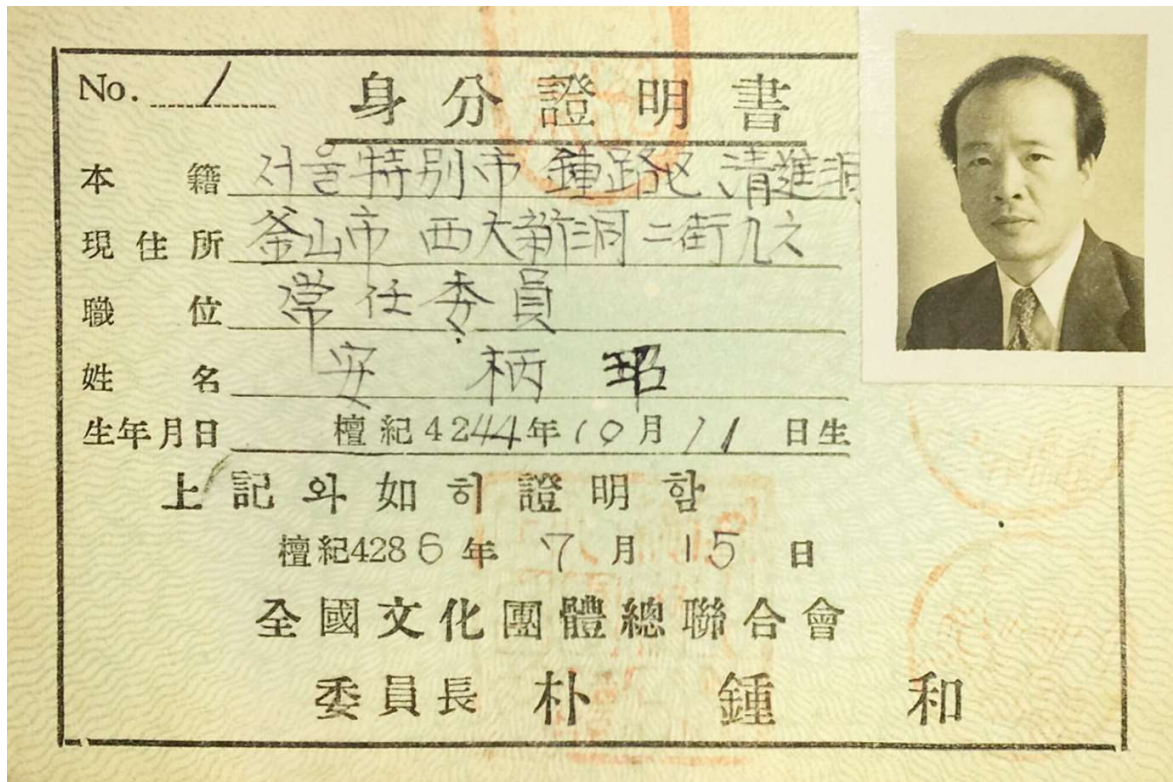 No. 1
身分證明書
本籍 서울特別市 鍾路区 清進洞
現住所 釜山市 西大新洞 二街九六
職位 常任委員
姓名 安柄玿
生年月日 檀紀4244年10月11日生
上記와如히證明함
檀紀4286年7月15日
全國文化團體總聯合會
委員長 朴鍾和